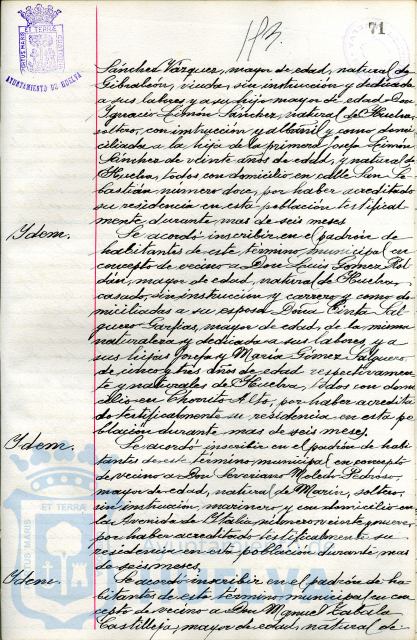 71
AYUNTAMIENTO DE HUELVA
Sánchez Vázquez, mayor de edad, natural de
Gibraleón, viuda, sin instrucción y dedicada
a sus labores y a su hijo mayor de edad Don
Ignacio Limón Sánchez, natural de Huelva,
soltero, con instrucción y albañil y como domi-
ciliada a la hija de la primera Josefa Limón
Sánchez de veinte años de edad, y natural de
Huelva, todos con domicilio en calle San Se-
bastián número doce, por haber acreditado
su residencia en esta población testifical-
mente, durante mas de seis meses
Idem.
Se acordó inscribir en el padrón de
habitantes de este término municipal en
concepto de vecino a Don Luis Gómez Rol-
dán, mayor de edad, natural de Huelva,
casado, sin instrucción y carrero y como do-
miciliadas a su esposa Doña Cinta Sal-
guero Garfias, mayor de edad, de la misma
naturaleza y dedicada a sus labores, y a
sus hijas Josefa y María Gómez Salguero
de cinco y tres años de edad respectivamen-
te y naturales de Huelva, todos con domi-
cilio en Chorrito Alto, por haber acredita-
do testificalmente su residencia en esta po-
blación durante mas de seis meses.
Idem.
Se acordó inscribir en el padrón de habi-
tantes de este término municipal en concepto
de vecino a Don Severiano Pedroso,
mayor de edad, natural de Marín, soltero,
sin instrucción, marinero, y con domicilio en
la Avenida de Italia número veinte y nueve,
por haber acreditado testificalmente su
residencia en esta población durante mas
de seis meses.
Idem.
Se acordó inscribir en el padrón de ha-
bitantes de este término municipal en con-
cepto de vecino a Don Manuel
Castilleja, mayor de edad, natural de